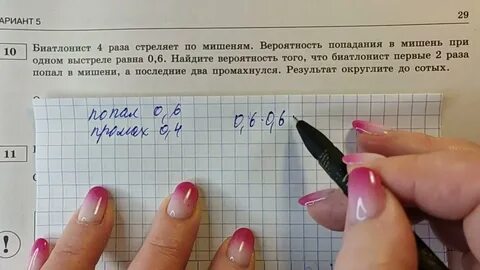 ВАРИАНТ 5
29
10 Биатлонист 4 раза стреляет по мишеням. Вероятность попадания в мишень при
одном выстреле равна 0,6. Найдите вероятность того, что биатлонист первые 2 раза
попал в мишени, а последние два промахнулся. Результат округлите до сотых.
попал 0,6
промах 0,4
0,6·0,6·
11
!